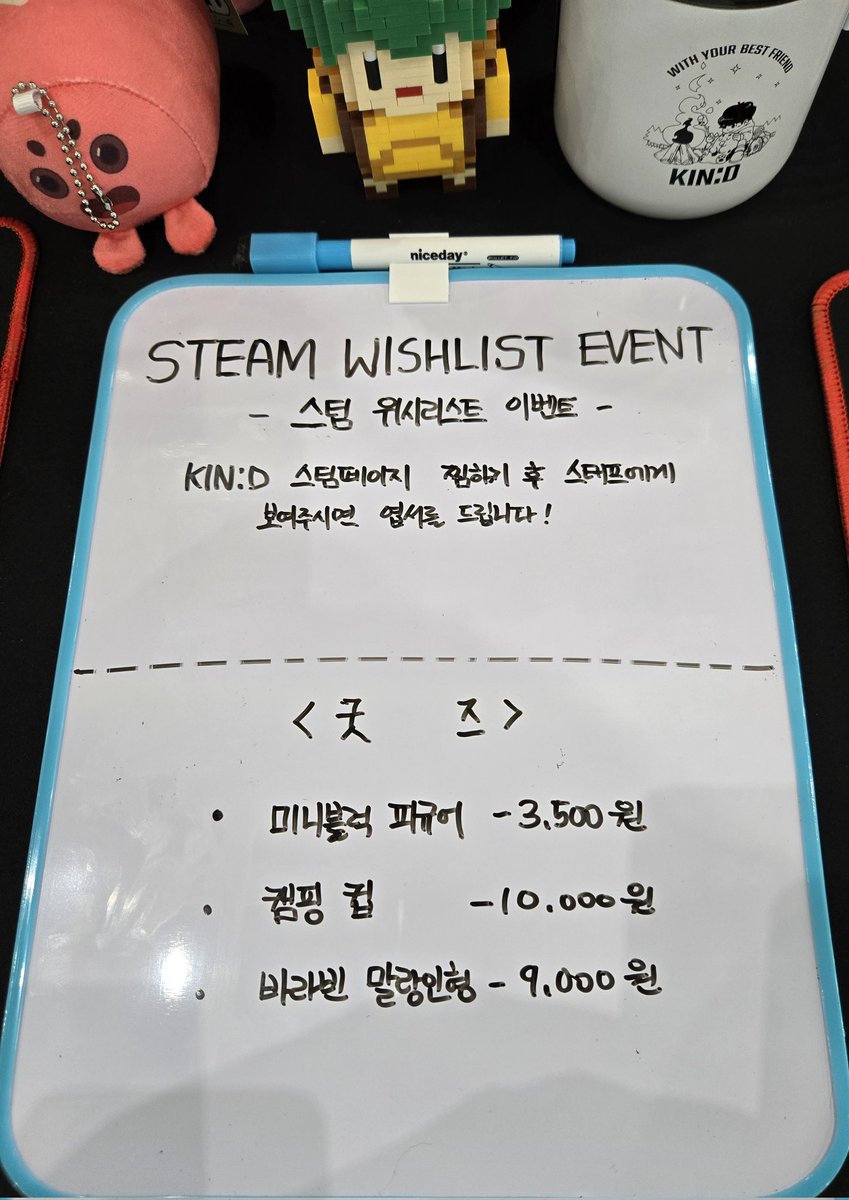 WITH YOUR BEST FRIEND
KIN:D
niceday®
STEAM WISHLIST EVENT
- 스팀 위시리스트 이벤트 -
KIN:D 스팀페이지 찜하기 후 스태프에게
보여주시면 엽서를 드립니다!
<굿 즈>
• 미니블럭 피규어 - 3,500원
• 캠핑 컵 - 10.000원
• 바라빈 말랑인형 - 9,000원